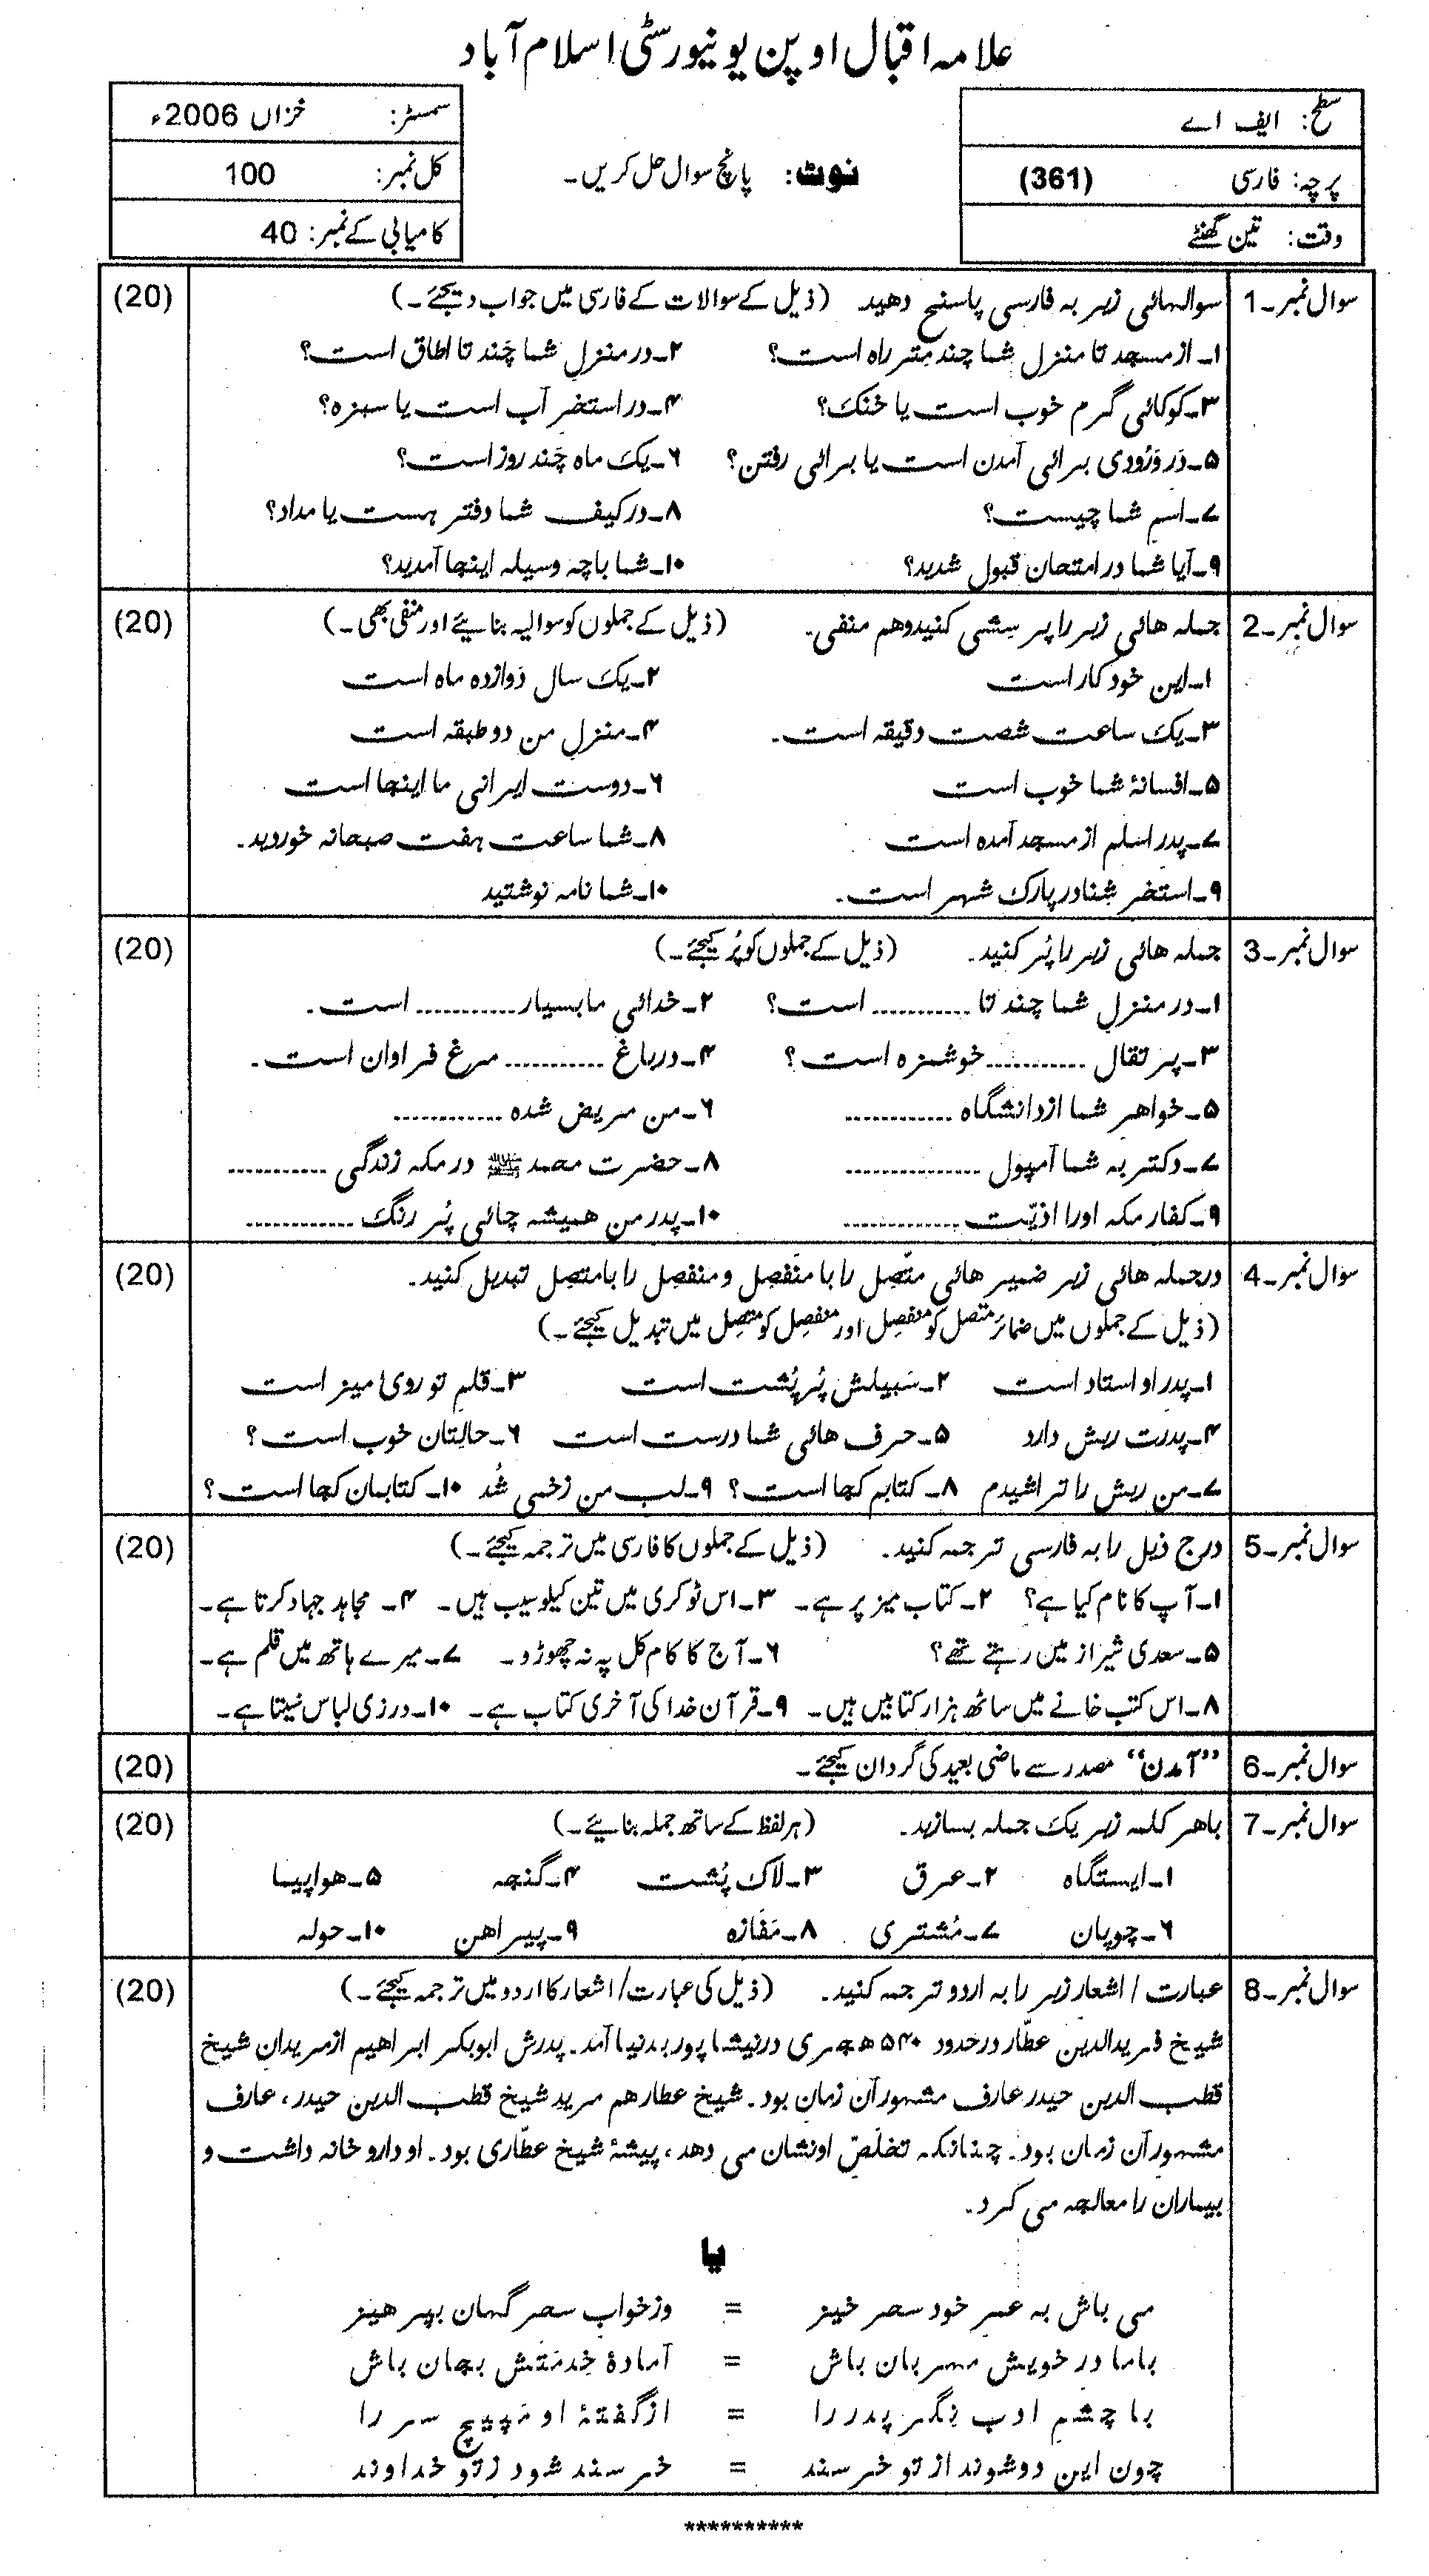 علامہ اقبال اوپن یونیورسٹی اسلام آباد
سطح: ایف اے
پرچہ: فارسی (361)
وقت: تین گھنٹے
نوٹ: پانچ سوال حل کریں۔
سمسٹر: خزاں 2006ء
کل نمبر: 100
کامیابی کے نمبر: 40
سوال نمبر۔1 سوالہائی زیر بہ فارسی پاسخ دھید (ذیل کے سوالات کے فارسی میں جواب دیجئے۔) (20)
۱۔ ازمسجد تا منزل شما چند مِتر راہ است؟ ۲۔درمنزلِ شما چَند تا اطاق است؟
۳۔کوکائی گرم خوب است یا خنک؟ ۴۔در استخر آب است یا سبزہ؟
۵۔دَر وَرُودی برائی آمدن است یا برائی رفتن؟ ۶۔یک ماہ چَند روز است؟
۷۔اسمِ شما چیست؟ ۸۔درکیف شما دفتر ہست یا مداد؟
۹۔آیا شما در امتحان قبول شدید؟ ۱۰۔شما باچہ وسیلہ اینجا آمدید؟
سوال نمبر۔2 جملہ ھائی زیر را پرسِشی کنیدوھم منفی۔ (ذیل کے جملوں کو سوالیہ بنائیے اور منفی بھی۔) (20)
۱۔این خودکار است ۲۔یک سال دَوازدہ ماہ است
۳۔یک ساعت شصت دقیقہ است۔ ۴۔منزلِ من دو طبقہ است
۵۔افسانۂ شما خوب است ۶۔دوست ایرانی ما اینجا است
۷۔پدر اسلم از مسجد آمدہ است ۸۔شما ساعت ہفت صبحانہ خوردید۔
۹۔استخر شِنادر پارک شہر است۔ ۱۰۔شما نامہ نوشتید
سوال نمبر۔3 جملہ ھائی زیر را پُر کنید۔ (ذیل کے جملوں کو پُر کیجئے۔) (20)
۱۔درمنزلِ شما چند تا ........... است؟ ۲۔خدائی ما بسیار ........... است۔
۳۔پرتقال ........... خوشمزہ است؟ ۴۔درباغ ........... مرغ فراوان است۔
۵۔خواھر شما ازدانشگاہ ............ ۶۔من مریض شدہ ............
۷۔دکتر بہ شما آمپول ............... ۸۔حضرت محمد ﷺ در مکہ زندگی ...........
۹۔کفار مکہ اورا اذیّت ............. ۱۰۔پدر من ھمیشہ چائی پُر رنگ ............
سوال نمبر۔4 درجملہ ھائی زیر ضمیر ھائی متّصِل را با منَفَصِل و منفصِل را بامتصِل تبدیل کنید۔ (20)
(ذیل کے جملوں میں ضمائر متصل کو منفصِل اور منفصِل کو متصِل میں تبدیل کیجئے۔)
۱۔پدر او استاد است ۲۔سَبیلش پُرپُشت است ۳۔قلمِ تو روی میز است
۴۔پدرت ریش دارد ۵۔حرف ھائی شما درست است ۶۔حالِتان خوب است؟
۷۔من ریش را تراشیدم ۸۔کتابم کجا است؟ ۹۔لب من زخمی شُد ۱۰۔کتابمان کجا است؟
سوال نمبر۔5 درج ذیل را بہ فارسی ترجمہ کنید۔ (ذیل کے جملوں کا فارسی میں ترجمہ کیجئے۔) (20)
۱۔آپ کا نام کیا ہے؟ ۲۔کتاب میز پر ہے۔ ۳۔اس ٹوکری میں تین کیلو سیب ہیں۔ ۴۔ مجاہد جہاد کرتا ہے۔
۵۔سعدی شیراز میں رہتے تھے؟ ۶۔آج کا کام کل پہ نہ چھوڑو۔ ۷۔میرے ہاتھ میں قلم ہے۔
۸۔اس کتب خانے میں ساٹھ ہزار کتابیں ہیں۔ ۹۔قرآن خدا کی آخری کتاب ہے۔ ۱۰۔درزی لباس سیتا ہے۔
سوال نمبر۔6 ”آمدن“ مصدر سے ماضی بعید کی گردان کیجئے۔ (20)
سوال نمبر۔7 باھر کلمہ زیر یک جملہ بسازید۔ (ہر لفظ کے ساتھ جملہ بنائیے۔) (20)
۱۔ایستگاہ ۲۔عرق ۳۔لاک پُشت ۴۔گنجہ ۵۔ھواپیما
۶۔چوپان ۷۔مُشتری ۸۔مَغَازہ ۹۔پیراھن ۱۰۔حولہ
سوال نمبر۔8 عبارت / اشعار زیر را بہ اردو ترجمہ کنید۔ (ذیل کی عبارت/ اشعار کا اردو میں ترجمہ کیجئے۔) (20)
شیخ فریدالدین عطّار درحدود ۵۴۰ ھجری درنیشاپور بدنیا آمد۔ پدرش ابوبکر ابراھیم ازمریدان شیخ
قطب الدین حیدر عارف مشہور آن زمان بود۔ شیخ عطار ھم مرید شیخ قطب الدین حیدر، عارف
مشہور آن زمان بود۔ چنانکہ تخلّص او نشان می دھد، پیشۂ شیخ عطّاری بود۔ او دارو خانہ داشت و
بیماران را معالجہ می کرد۔
یا
می باش بہ عمرِ خود سحر خیز = وزخواب سحر گہان بپرھیز
باما در خویش مہربان باش = آمادۂ خِدمَتش بجان باش
با چشمِ ادب نِگر پدر را = ازگفتۂ او مَپیچ سر را
چون این دوشوند از تو خرسند = خرسند شود زتو خداوند
**********